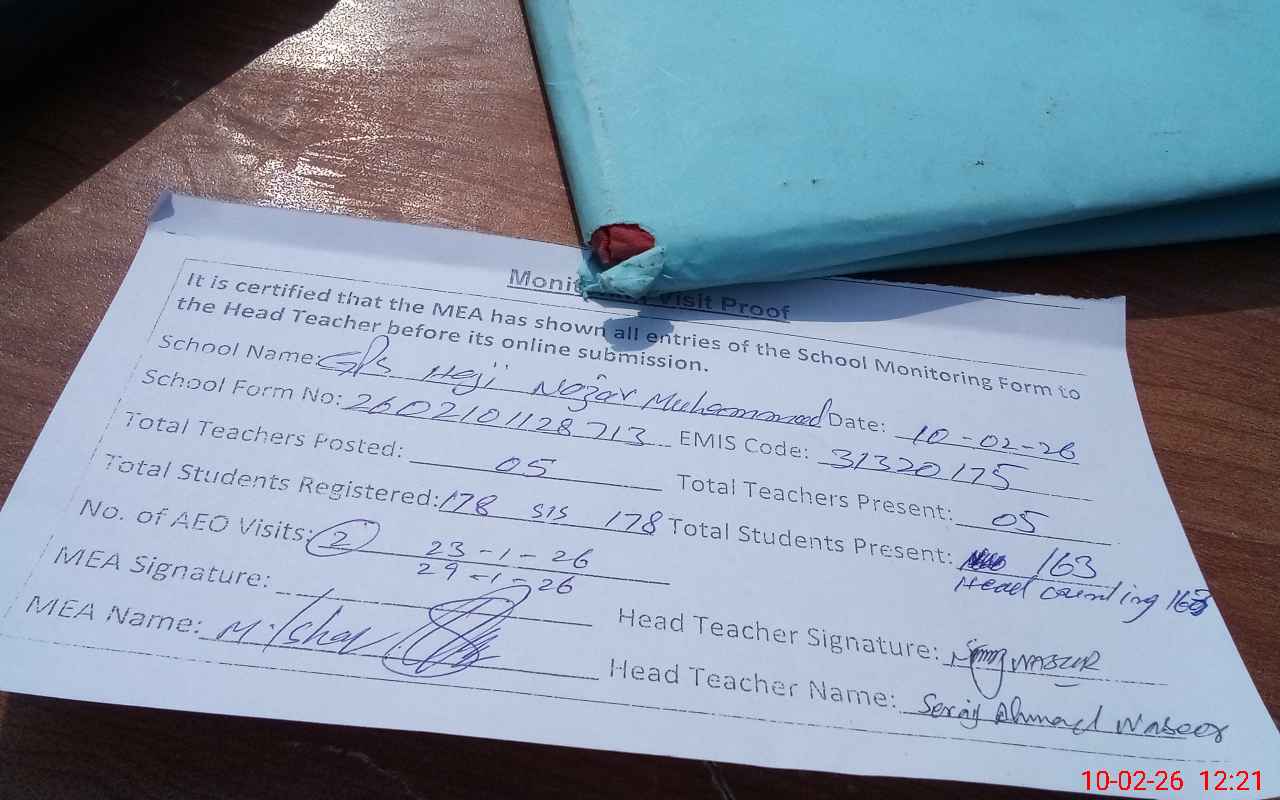 Monitoring Visit Proof
It is certified that the MEA has shown all entries of the School Monitoring Form to
the Head Teacher before its online submission.
School Name: GPS Haji Nazar Muhammad Date: 10-02-26
School Form No: 2602101128713 EMIS Code: 31320175
Total Teachers Posted: 05 Total Teachers Present: 05
Total Students Registered: 178 SIS 178 Total Students Present: 163
Head counting 163
No. of AEO Visits: 2 23-1-26
29-1-26
MEA Signature: Head Teacher Signature:
MEA Name: Head Teacher Name: Seraj Ahmad Waseer
10-02-26 12:21